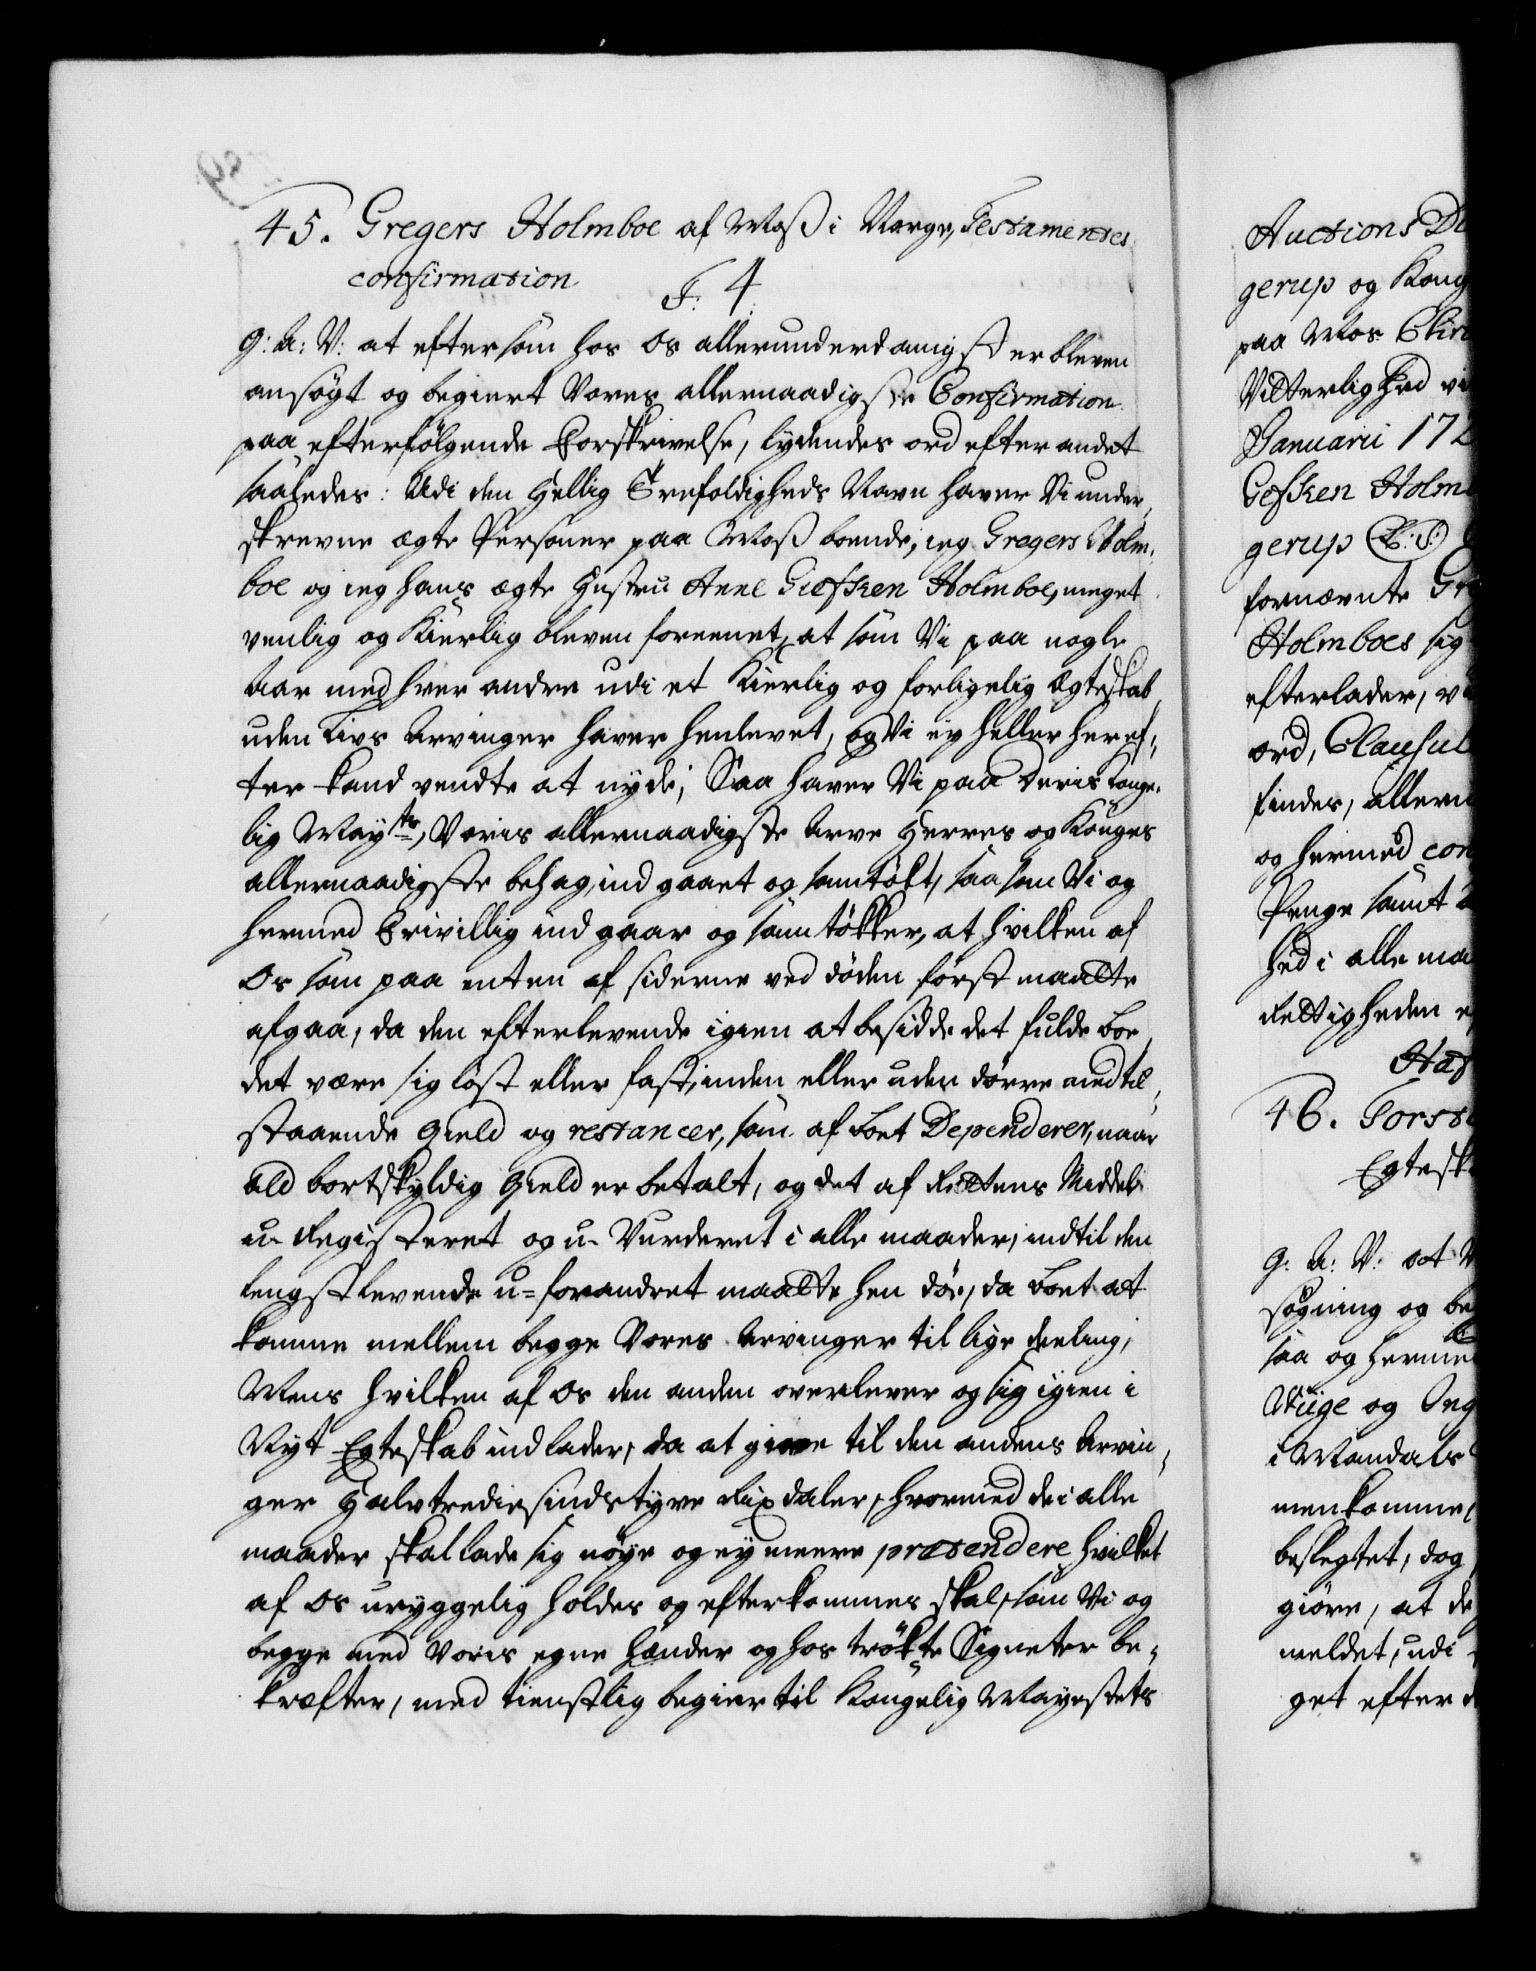 45. Gregers Holmboe af Moss i Norge, Testamentes
confirmation
F. 4
G: A: V: at eftersom hos Os allerunderdanigst er bleven
ansøgt og begiert Vores allernaadigste Confirmation
paa efterfølgende Forskrivelse, lydendes ord efter andet
saaledes: Udi den Hellig Trefoldigheds Navn haver Vi under-
skrevne ægte Personer paa Moss boende, jeg Gregers Holm-
boe og jeg hans ægte Hustru Anne Giefken Holmboe, meget
venlig og Kierlig bleven foreenet, at som Vi paa nogle
Aar med hver andre udi et Kierlig og forligelig Ægteskab
uden Livs Arvinger haver henlevet, og Vi ey heller heref-
ter kand vendte at nyde; Saa haver Vi paa Deris Konge-
lig Mayts, Voris allernaadigste Arve Herres og Konges
allernaadigste behag, ind gaaet og samtøkt, saa som Vi og
hermed Frivillig ind gaar og samtøkker, at hvilken af
Os som paa enten af siderne ved døden først maatte
afgaa, da den efterlevende igien at besidde det fulde Boe
det være sig løst eller fast, inden eller uden dørre med til-
staaende Gield og restancer, som af Boet Dependerer, naar
ald bortskyldig Gield er betalt, og det af Rettens Middel
u-Registeret og u-Vurderet i alle maader, indtil den
lengst levende u-forandret maatte hen døe, da Boet at
komme mellem begge Vores Arvinger til lige deeling,
Mens hvilken af Os den anden overlever og sig igien i
Nyt Egteskab indlader, da at give til den andens Arvin-
ger Halvtrediesindstyve Rixdaler, hvormed de i alle
maader skal lade sig nøye og ey meere prætendere hvilket
af Os uryggelig holdes og efterkommes skal, som Vi og
begge med Voris egne Hænder og hos trøkte Signeter be-
kræfter, med tienstlig begier til Kongelig Mayestets
Auctions
gerup og Kong
paa Mos
Vitterlighed vi
Januarii 172
Gefken Holm
gerup (L. S.)
fornævnte Gr
Holmboes sig
efterlader, v
ord, Clausul
findes, allern
og hermed con
Penge samt
hed i alle ma
Rettigheden e
Haf
46. Torst
Egtesk
G: A: V: at V
søgning og be
saa og herme
og Ing
i Mandals
menkomme,
beslegtet, dog
giøre, at de
meldet, udi
get efter d